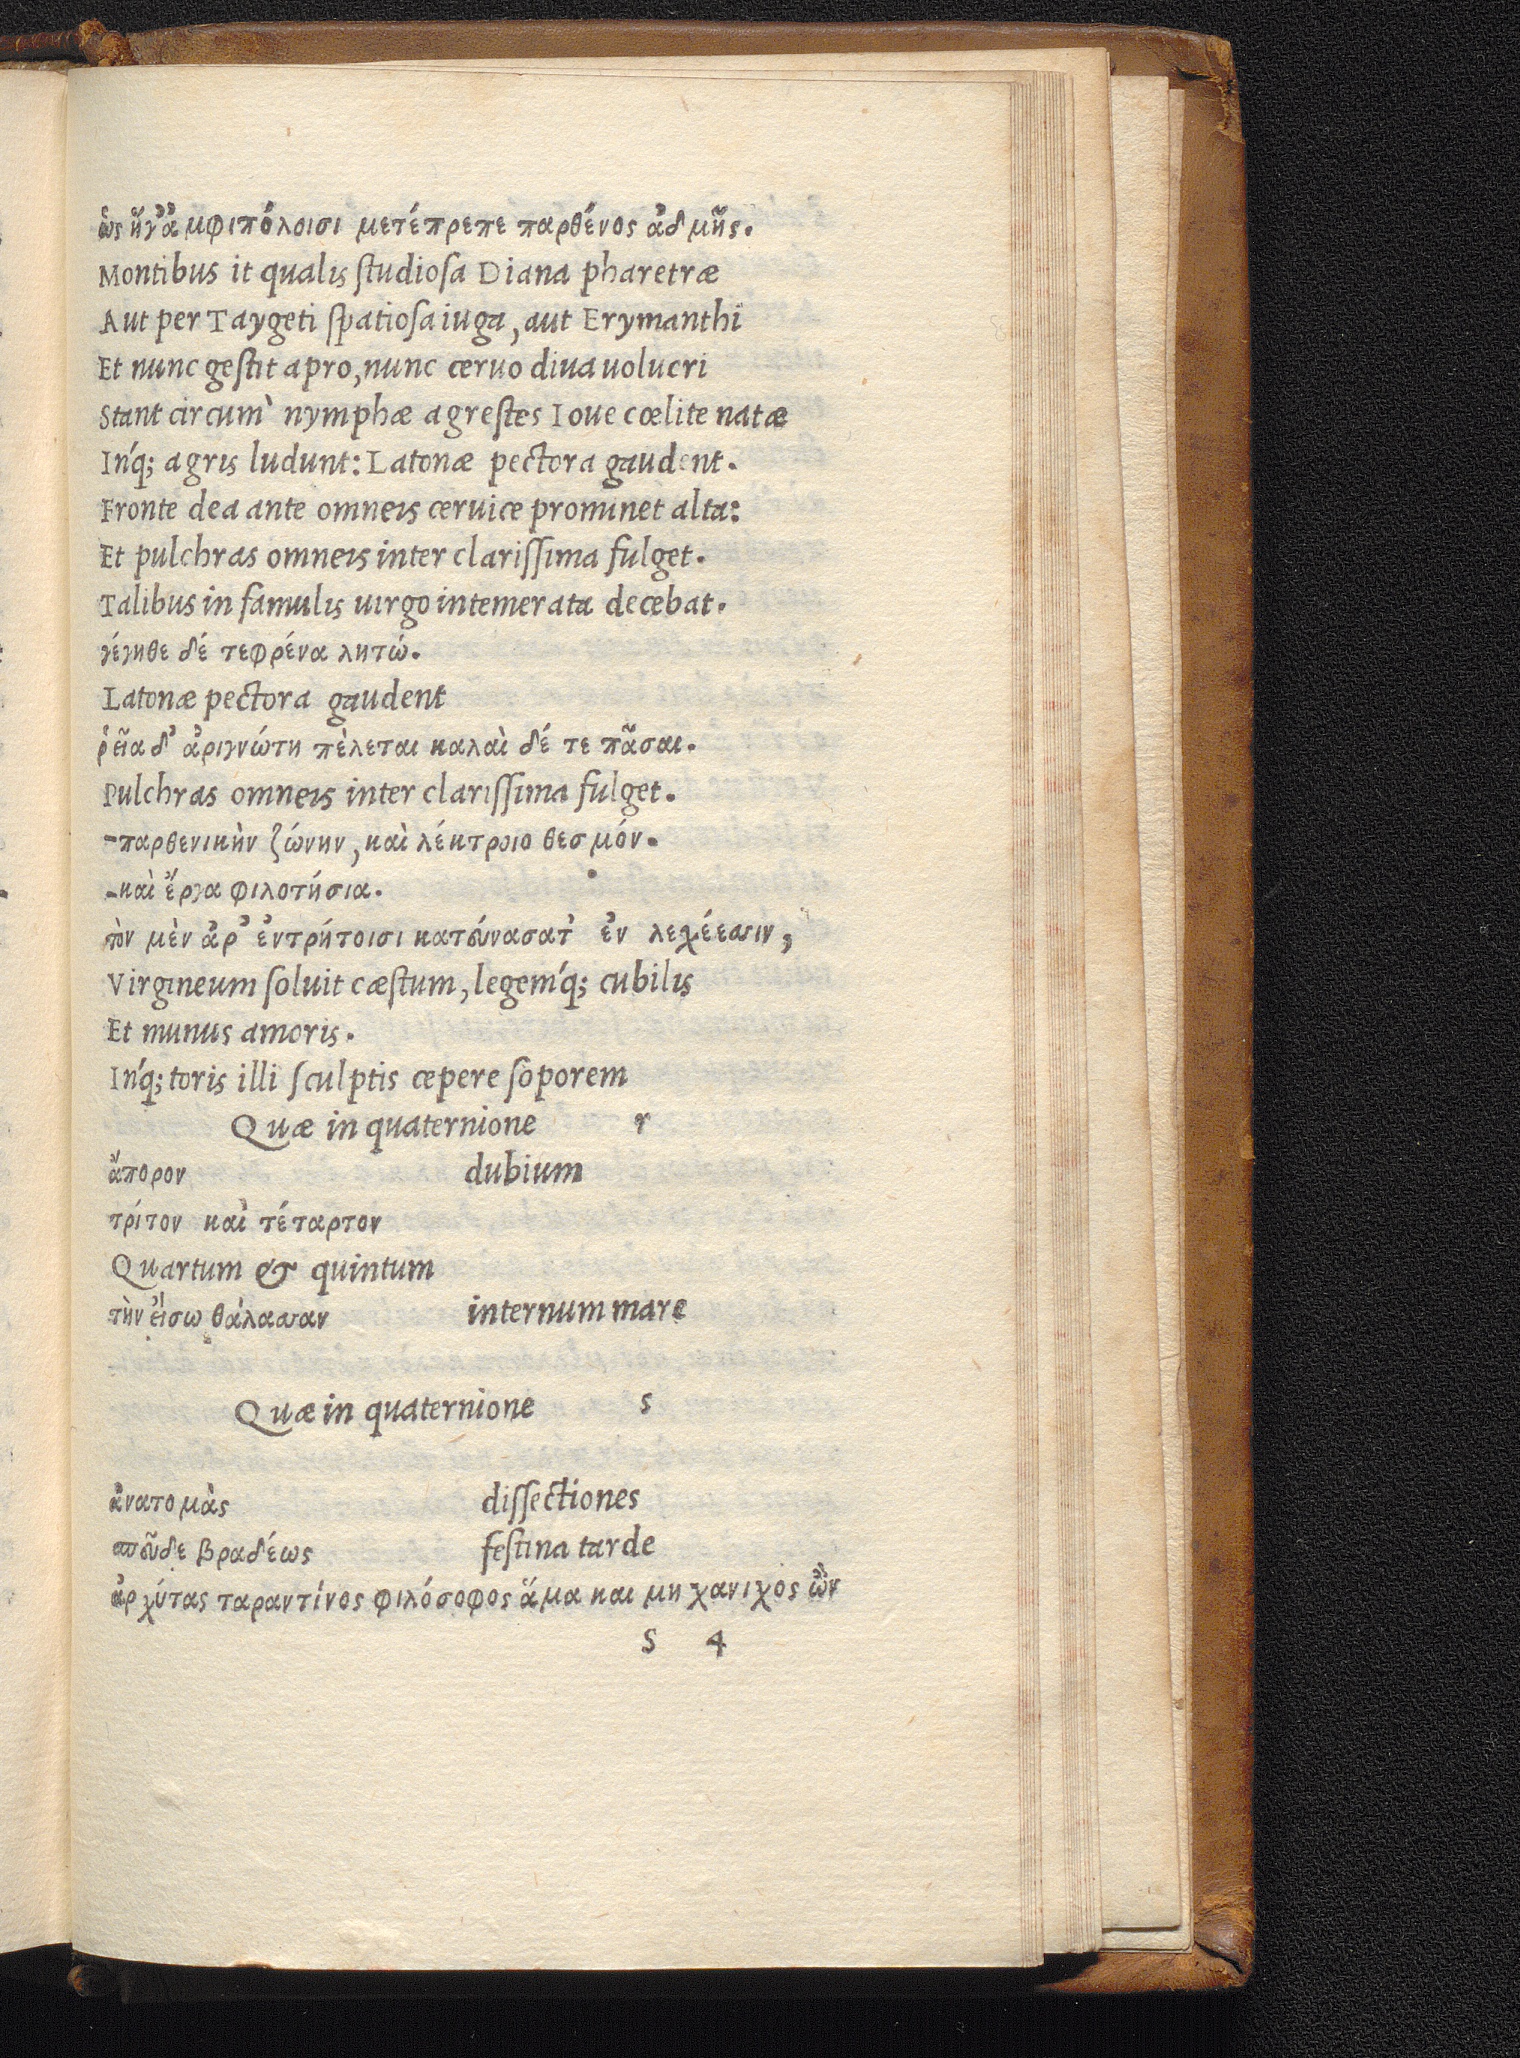 ὣς ἥγ᾽ἀ μφιπόλοισι μετέπρεπε παρθένος ἀδ μῆς.
Montibus it qualis ſtudioſa Diana pharetræ
Aut per Taygeti ſpatioſa iuga, aut Erymanthi
Et nunc geſtit apro, nunc ceruo diua uolucri
Stant circum` nymphæ agreſtes Ioue cœlite natæ
Inq́; agris ludunt: Latonæ pectora gaudent.
Fronte dea ante omneis ceruice prominet alta:
Et pulchras omneis inter clariſſima fulget.
Talibus in famulis uirgo intemerata decebat.
γέγηθε δέ τεφρένα λητώ.
Latonæ pectora gaudent
ῥεῖα δ᾽ ἀριγνώτη πὲλεται καλαὶ δέ τε πᾶσαι.
Pulchras omneis inter clariſſima fulget.
-παρθενικὴν ζώνην, καὶ λέκτροιο θεσμόν.
-καὶ ἔργα φιλοτήσια.
τὸν μὲν ἀρ᾽ ἐντρήτοισι κατούνασατ᾽ ἐν λεχέεσσιν,
Virgineum ſoluit cæſtum, legemq́; cubilis
Et munus amoris.
Inq́; toris illi ſculptis cepere ſoporem
Quæ in quaternione r
ἄπορον dubium
τρίτον καὶ τέταρτον
Quartum & quintum
τὴν εἴσω θάλασσαν internum mare
Quæ in quaternione s
ἀνατομὰς diſſectiones
σποῦδε βραδέως feſtina tarde
ἀρχύτας ταραντίνος φιλόσοφος ἅμα και μηχανιχος ὢν
S 4